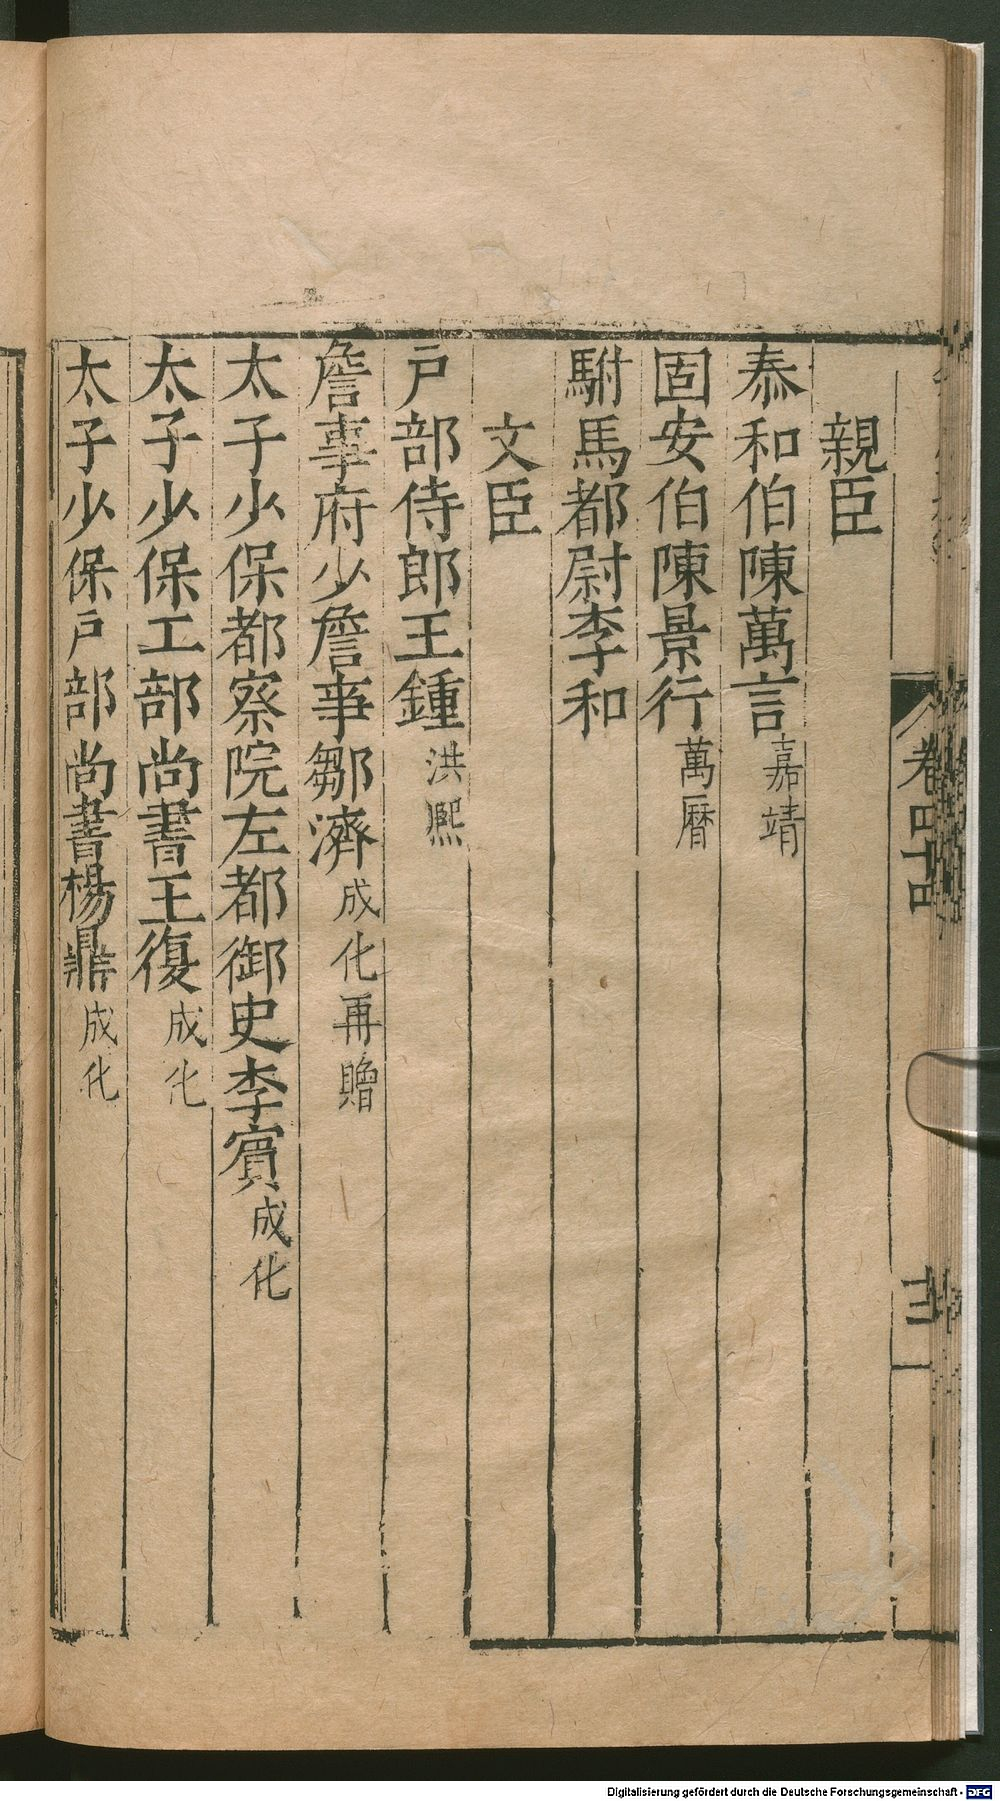 親臣
泰和伯陳萬言嘉靖
固安伯陳景行萬曆
駙馬都尉李和
文臣
戶部侍郎王鍾洪熙
詹事府少詹事鄒濟成化再贈
太子少保都察院左都御史李賓成化
太子少保工部尚書王復成化
太子少保戶部尚書楊鼎成化
卷四十四
Digitalisierung gefördert durch die Deutsche Forschungsgemeinschaft - DFG